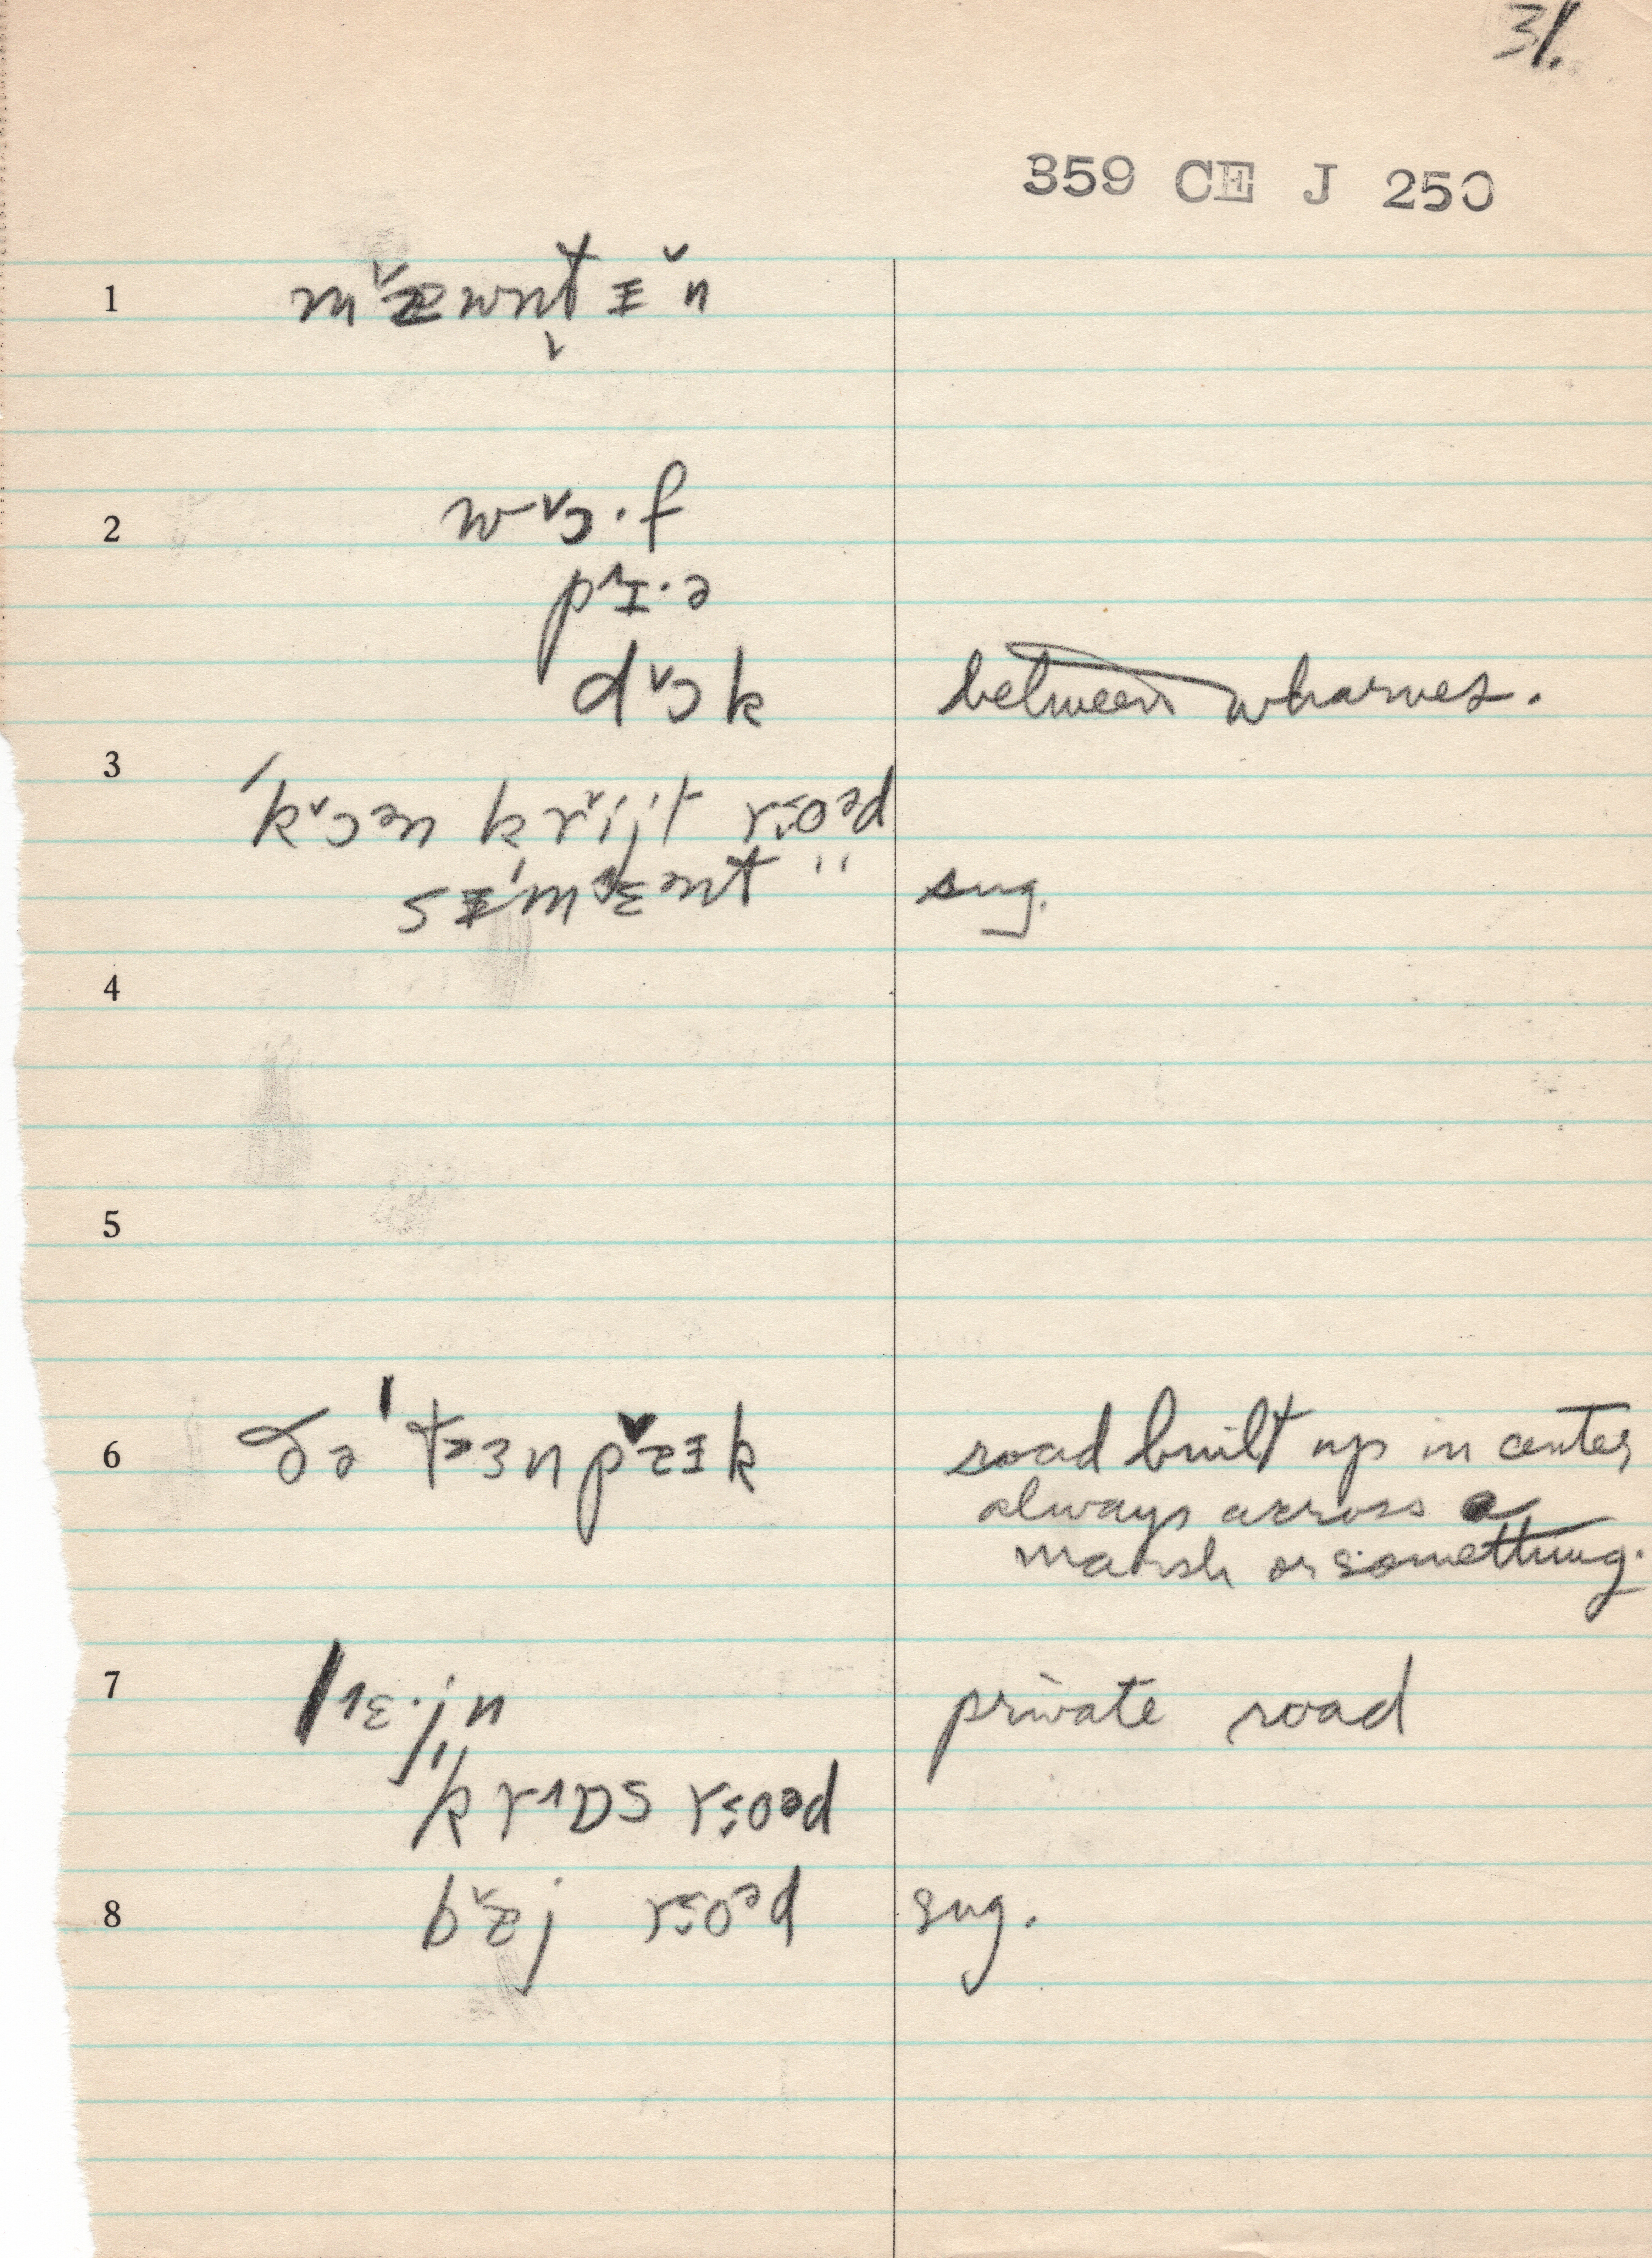 31.
359 CE J 250
1 m˅æwnt̬ɪ̵̆n
2 w˅ɔ·f
p˄ɪ·ə
d˅ɔk between wharves.
3 ˈk˅ɔən kr˅ijt rsoəd
sɪ̵ˈm˅ɛənt " sug.
4
5
6 ðə ˈtɜnp˅æɪk road built up in center
always across a
marsh or something.
7 l˄ɛ·jn private road
kr˄ɒs rsoəd
8 b˅æj rsoəd sug.